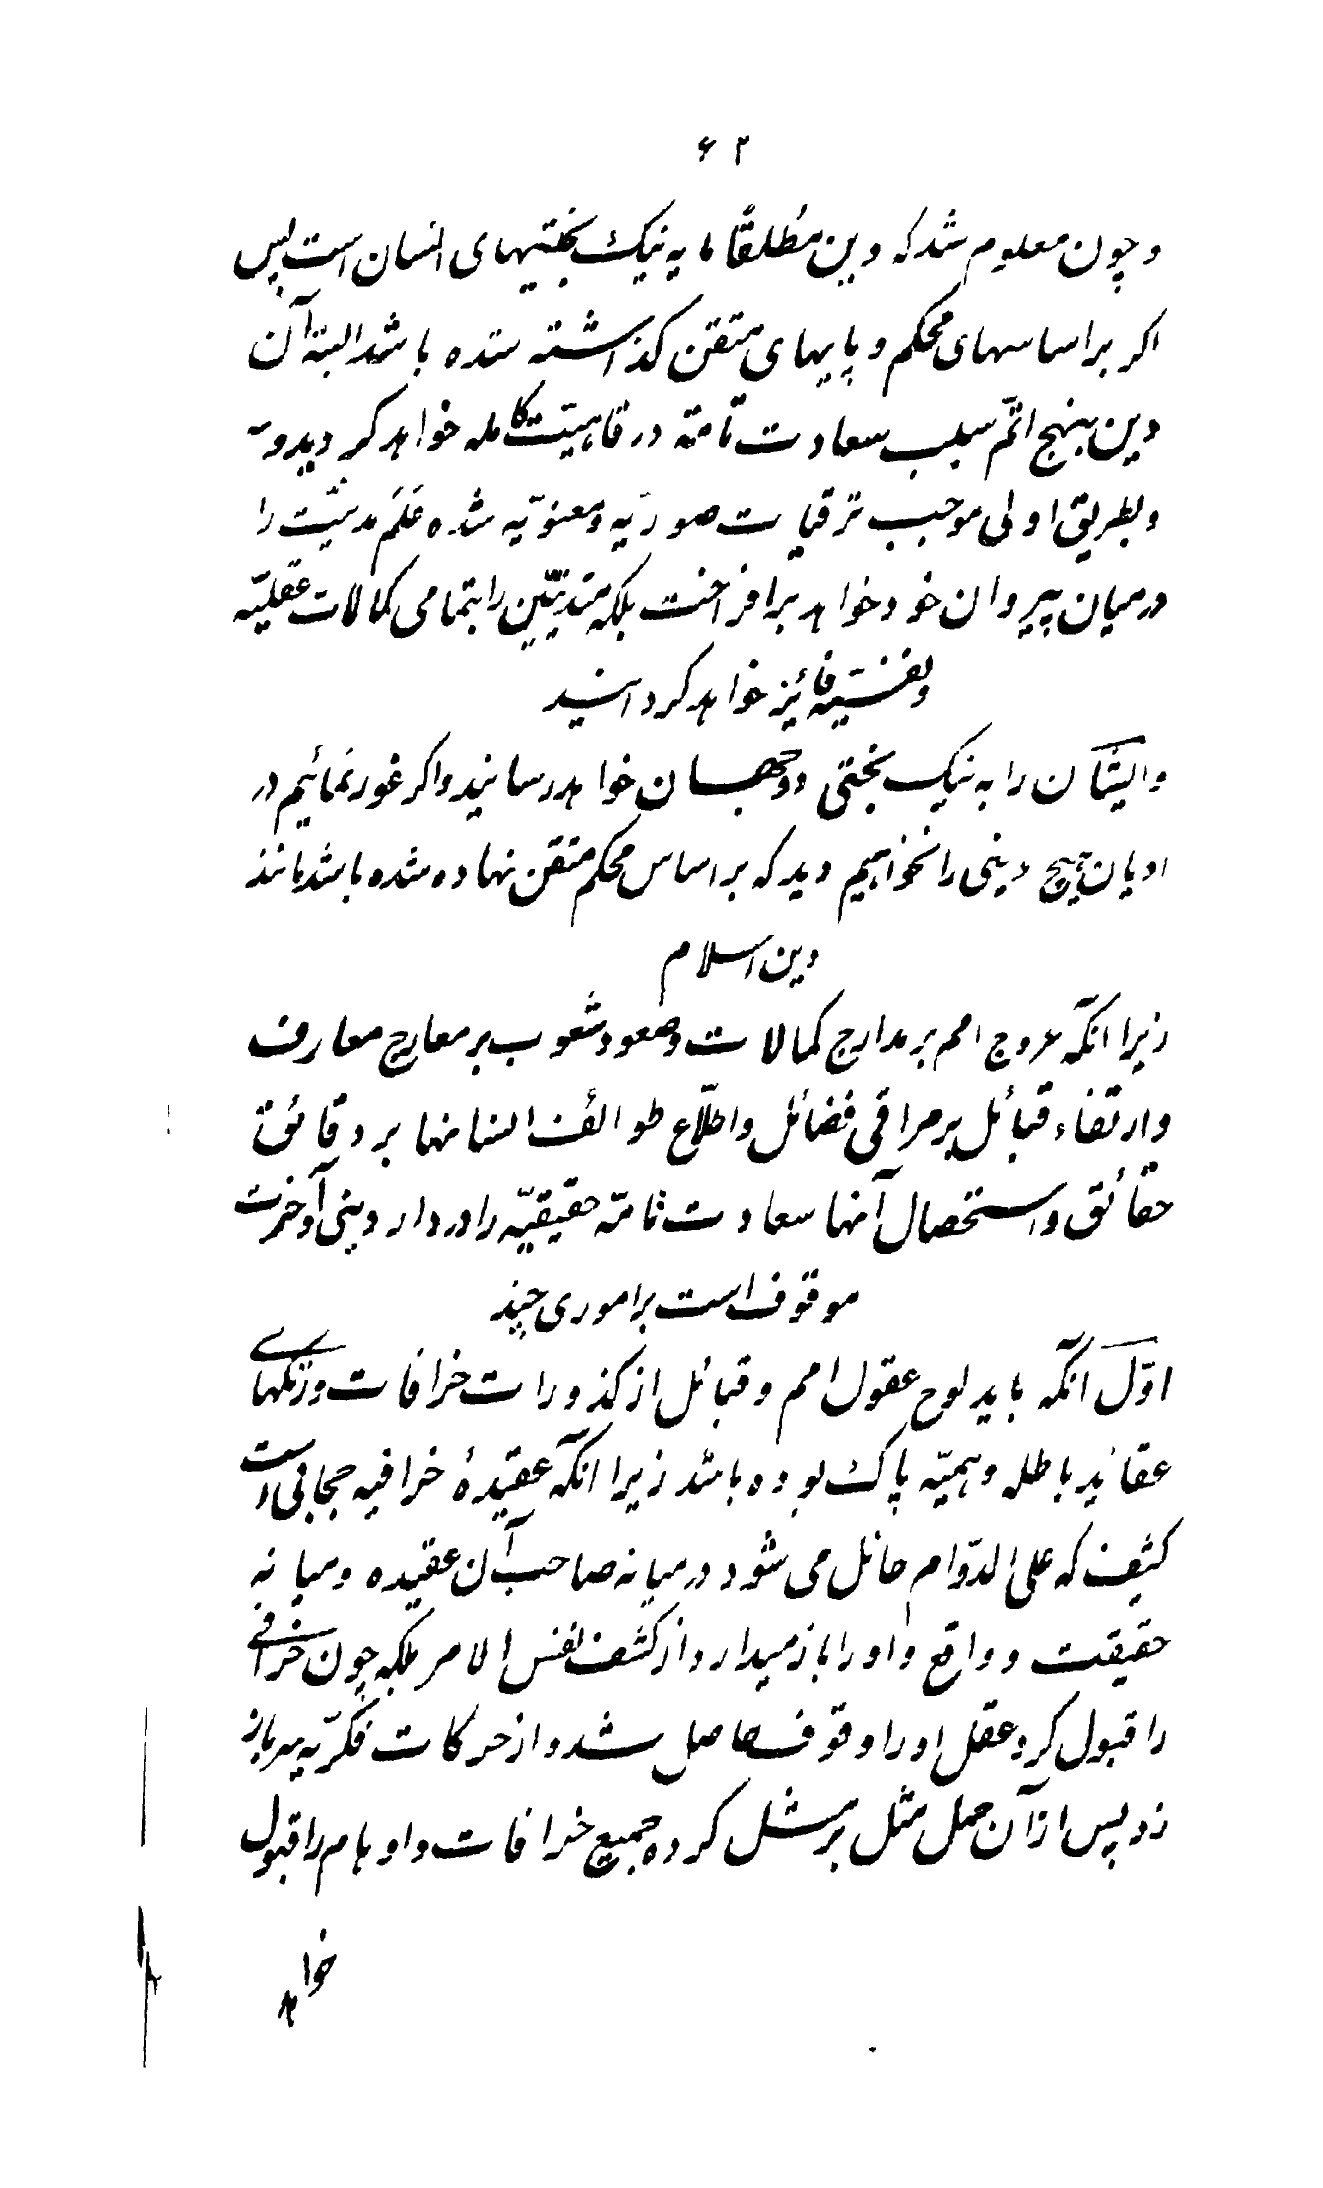 ۶۲
و چون معلوم شد که دین مطلقًا مایه نیک بختیهای انسان است پس
اکر بر اساسهای محکم و پایهای متقن کذاشته شده باشد البته آن
دین بنهج اتمّ سبب سعادت تامّه و رفاهیّت کامله خواهد کردید و
و بطریق اولی موجب ترقیات صوریّه و معنویّه شده عَلَم مدنیّت را
در میان پیروان خود خواهد برافراخت بلکه متدیّنین را بتمامی کمالات عقلیّه
و نفسیّه فائیز خواهد کردانید
و ایشان را به نیک بختی دو جهان خواهد رسانید و اکر غور نمائیم در
ادیان هیچ دینی را نخواهیم دید که بر اساس محکم متقن نهاده شده باشد مانند
دین اسلام
زیرا انکه عروج امم بر مدارج کمالات و صعود شعوب بر معارج معارف
و ارتفاء قبائل بر مراقی فضائل و اطّلاع طوائف انسانها بر دقائق
حقائق و استحصال آنها سعادت تامّه حقیقیّه را در دار دینی و آخرت
موقوف است بر اموری چند
اوّل آنکه باید لوح عقول امم و قبائل از کدورات خرافات و زنکهای
عقائد باطله وهمیّه پاک بوده باشد زیرا انکه عقیدهٔ خرافیه حجابی است
کثیف که علی الدّوام حائل می شود در میانه صاحب آن عقیده و میانه
حقیقت و واقع و او را باز میدارد از کشف نفس الامر بلکه چون خرافی
را قبول کرد عقل او را وقوف حاصل شد و از حرکات فکریّه سر باز
زد پس از آن حمل مثل بر مثل کرده جمیع خرافات و اوهام را قبول
خواهد